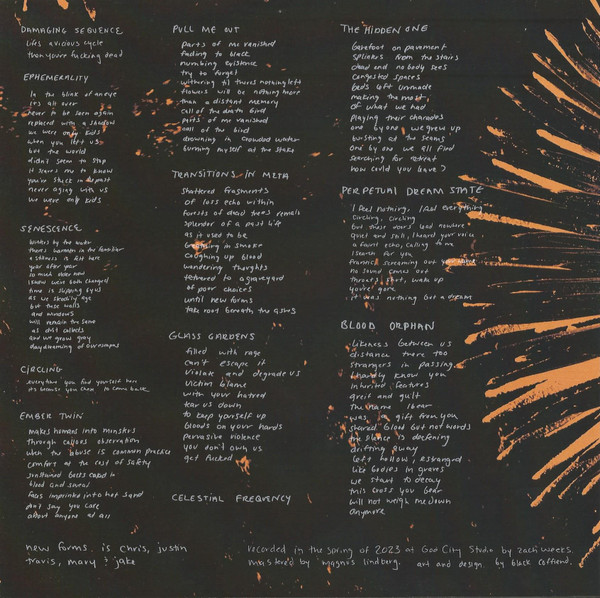 DAMAGING SEQUENCE
lifes a vicious cycle
then you're fucking dead
EPHEMERALITY
In the blink of an eye
it's all over
never to be seen again
replaced with a shadow
we were only kids
when you left us
but the world
didn't seem to stop
it scares me to know
you're stuck in the past
never aging with us
we were only kids
SENESCENCE
by the water
there's in the familiar
a stillness is felt here
year after year
so much older now
I know we're both changed
time is slipping by
as we steadily age
but these walls
and windows
will remain the same
as dust collects
and we grow gray
daydreaming of ourselves
CIRCLING
everywhere you find yourself here
its because you chose to come back
EMBER TWIN
makes humans into monsters
through callous observation
when the abuse is common practice
comfort at the cost of safety
in
blood and
faces imprinted into her sand
don't say you care
about anyone at all
PULL ME OUT
parts of me vanished
fading to black
numbing existence
try to forget
withering til there's nothing left
flowers will be nothing more
than a distant memory
call of the death bird
parts of me vanished
call of the bird
drowning in crowded water
burning myself at the stake
TRANSITIONS IN META
shattered fragments
of loss echo within
forests of dead trees remain
splendor of a past life
as it used to be
breathing in smoke
coughing up blood
wandering thoughts
tethered to a graveyard
of poor choices
until new forms
take root beneath the ashes
GLASS GARDENS
filled with rage
can't escape it
violate and degrade us
victim blame
with your hatred
tear us down
to keep yourself up
bloods on your hands
pervasive violence
you don't own us
get fucked
CELESTIAL FREQUENCY
THE HIDDEN ONE
barefoot on pavement
splinters from the stairs
dead end nobody sees
congested spaces
beds left unmade
making the most
of what we had
playing their charades
one by one we grew up
bursting at the seams
one by one we all find
searching for retreat
how could you leave?
PERPETUAL DREAM STATE
I feel nothing, I feel everything
circling, circling
but these doors lead nowhere
quiet and still, I heard your voice
a faint echo, calling to me
I search for you
frantic screaming out your name
no sound comes out
throat's shot, wake up
you're gone
it was nothing but a dream
BLOOD ORPHAN
likeness between us
distance there too
strangers in passing
I hardly know you
inherited features
greif and guilt
the name I bear
was a gift from you
shared blood but not words
the silence is deafening
drifting away
left hollow, estranged
like bodies in graves
we start to decay
this cross you bear
will not weigh me down
anymore
new forms. is chris, justin
travis, mary & jake
recorded in the spring of 2023 at God City Studio by zach weeks.
mastered by magnus lindberg. art and design by black coffiend.